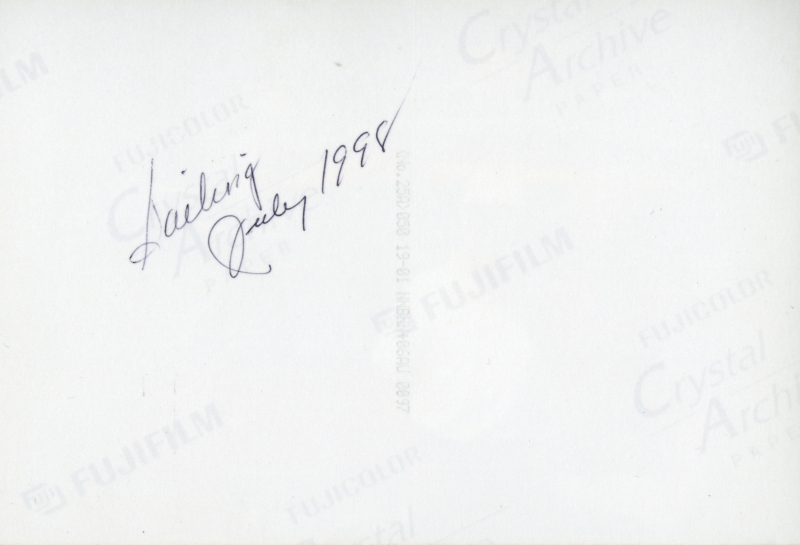 Crystal
Archive
PAPER
FUJIFILM
FUJICOLOR
Sailing
July 1998
FUJIFILM
FUJICOLOR
Crystal
Archive
PAPER
FUJIFILM
FUJICOLOR